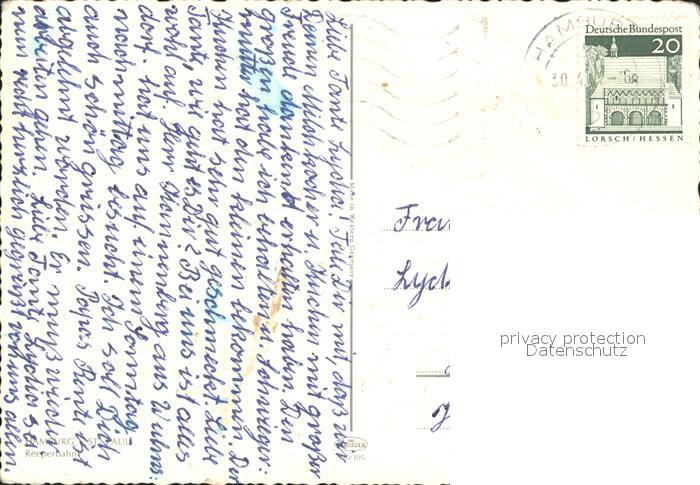 Liebe Tante Lycha! Teile Dir mit, daß wir
Deinen Milchkocher u. Kuchen mit großer
Freude dankend erhalten haben. Den
großen habe ich behalten u. Schwieger-
mutter hat den kleinen bekommen. Der
Kuchen hat sehr gut geschmeckt. Liebe
Tante, wie geht es Dir? Bei uns ist alles
wohl auf. Herr aus Wilms-
dorf hat uns auf einen Sonntag
nachmittag besucht. Ich soll Dich
auch schön grüssen. Papas Rente ist
abgelehnt worden. Er muß wieder
arbeiten gehen. Liebe Tante Lycha sei
nun recht herzlich gegrüßt von uns allen.
HAMBURG ST. PAULI
Reeperbahn
Made in Western Germany
KRÜGER
/305
HAMBURG
30.
Deutsche Bundespost
20
LORSCH / HESSEN
Frau
Lych
privacy protection
Datenschutz